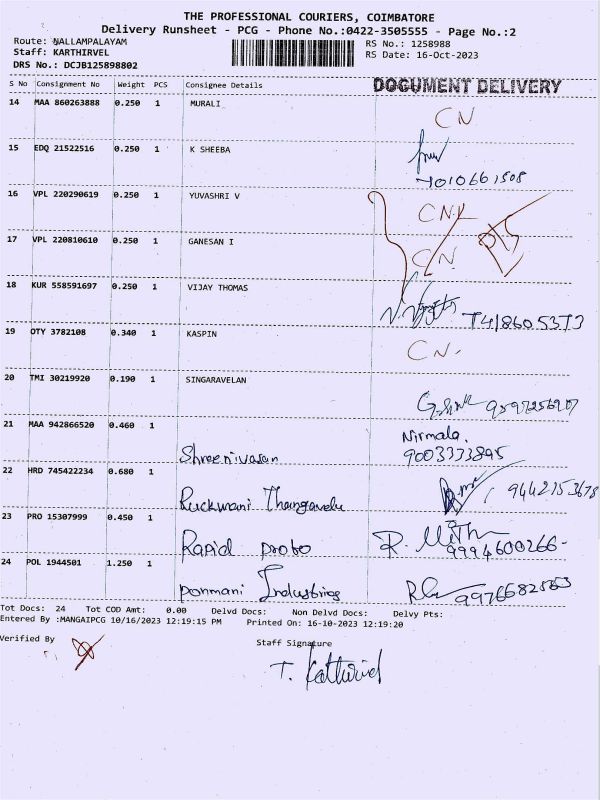 THE PROFESSIONAL COURIERS, COIMBATORE
Delivery Runsheet - PCG - Phone No.:0422-3505555 - Page No.:2
Route: NALLAMPALAYAM
Staff: KARTHIRVEL
DRS No.: DCJB125898802
RS No.: 1258988
RS Date: 16-Oct-2023
S No Consignment No Weight PCS Consignee Details DOCUMENT DELIVERY
14 MAA 860263888 0.250 1 MURALI
CN
15 EDQ 21522516 0.250 1 K SHEEBA
7010661508
16 VPL 220290619 0.250 1 YUVASHRI V
CNR
17 VPL 220810610 0.250 1 GANESAN I
CN
18 KUR 558591697 0.250 1 VIJAY THOMAS
19 OTY 3782108 0.340 1 KASPIN
CN.
20 TMI 30219920 0.190 1 SINGARAVELAN
21 MAA 942866520 0.460 1 Shreenivasan
Nirmala.
9003333895
22 HRD 745422234 0.680 1 Ruckwani Thangavelu
9442153678
23 PRO 15307999 0.450 1 Rapid proto
9994600266-
24 POL 1944501 1.250 1 ponmani Industries
Tot Docs: 24 Tot COD Amt: 0.00 Delvd Docs: Non Delvd Docs: Delvy Pts:
Entered By :MANGAIPCG 10/16/2023 12:19:15 PM Printed On: 16-10-2023 12:19:20
Verified By
Staff Signature